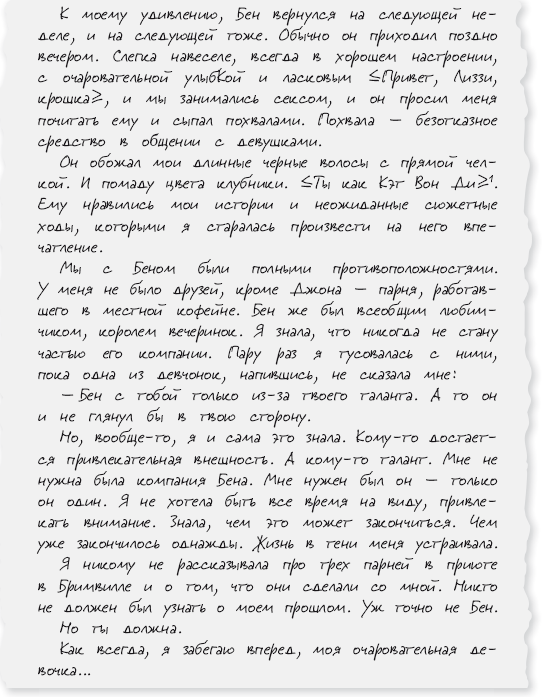 К моему удивлению, Бен вернулся на следующей не-
деле, и на следующей тоже. Обычно он приходил поздно
вечером. Слегка навеселе, всегда в хорошем настроении,
с очаровательной улыбкой и ласковым ≤Привет, Лиззи,
крошка≥, и мы занимались сексом, и он просил меня
почитать ему и сыпал похвалами. Похвала — безотказное
средство в общении с девушками.
Он обожал мои длинные черные волосы с прямой чел-
кой. И помаду цвета клубники. ≤Ты как Кэт Вон Ди≥¹.
Ему нравились мои истории и неожиданные сюжетные
ходы, которыми я старалась произвести на него впе-
чатление.
Мы с Беном были полными противоположностями.
У меня не было друзей, кроме Джона — парня, работав-
шего в местной кофейне. Бен же был всеобщим любим-
чиком, королем вечеринок. Я знала, что никогда не стану
частью его компании. Пару раз я тусовалась с ними,
пока одна из девчонок, напившись, не сказала мне:
— Бен с тобой только из-за твоего таланта. А то он
и не глянул бы в твою сторону.
Но, вообще-то, я и сама это знала. Кому-то достает-
ся привлекательная внешность. А кому-то талант. Мне не
нужна была компания Бена. Мне нужен был он — только
он один. Я не хотела быть все время на виду, привле-
кать внимание. Знала, чем это может закончиться. Чем
уже закончилось однажды. Жизнь в тени меня устраивала.
Я никому не рассказывала про трех парней в приюте
в Бримвилле и о том, что они сделали со мной. Никто
не должен был узнать о моем прошлом. Уж точно не Бен.
Но ты должна.
Как всегда, я забегаю вперед, моя очаровательная де-
вочка...